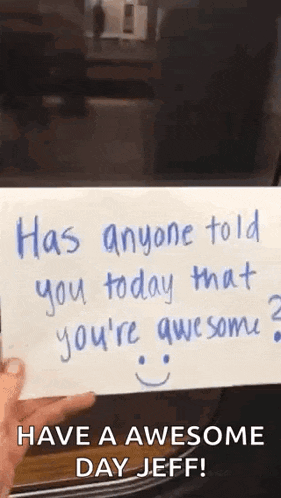 Has anyone told
you today that
you're awesome?
HAVE A AWESOME
DAY JEFF!